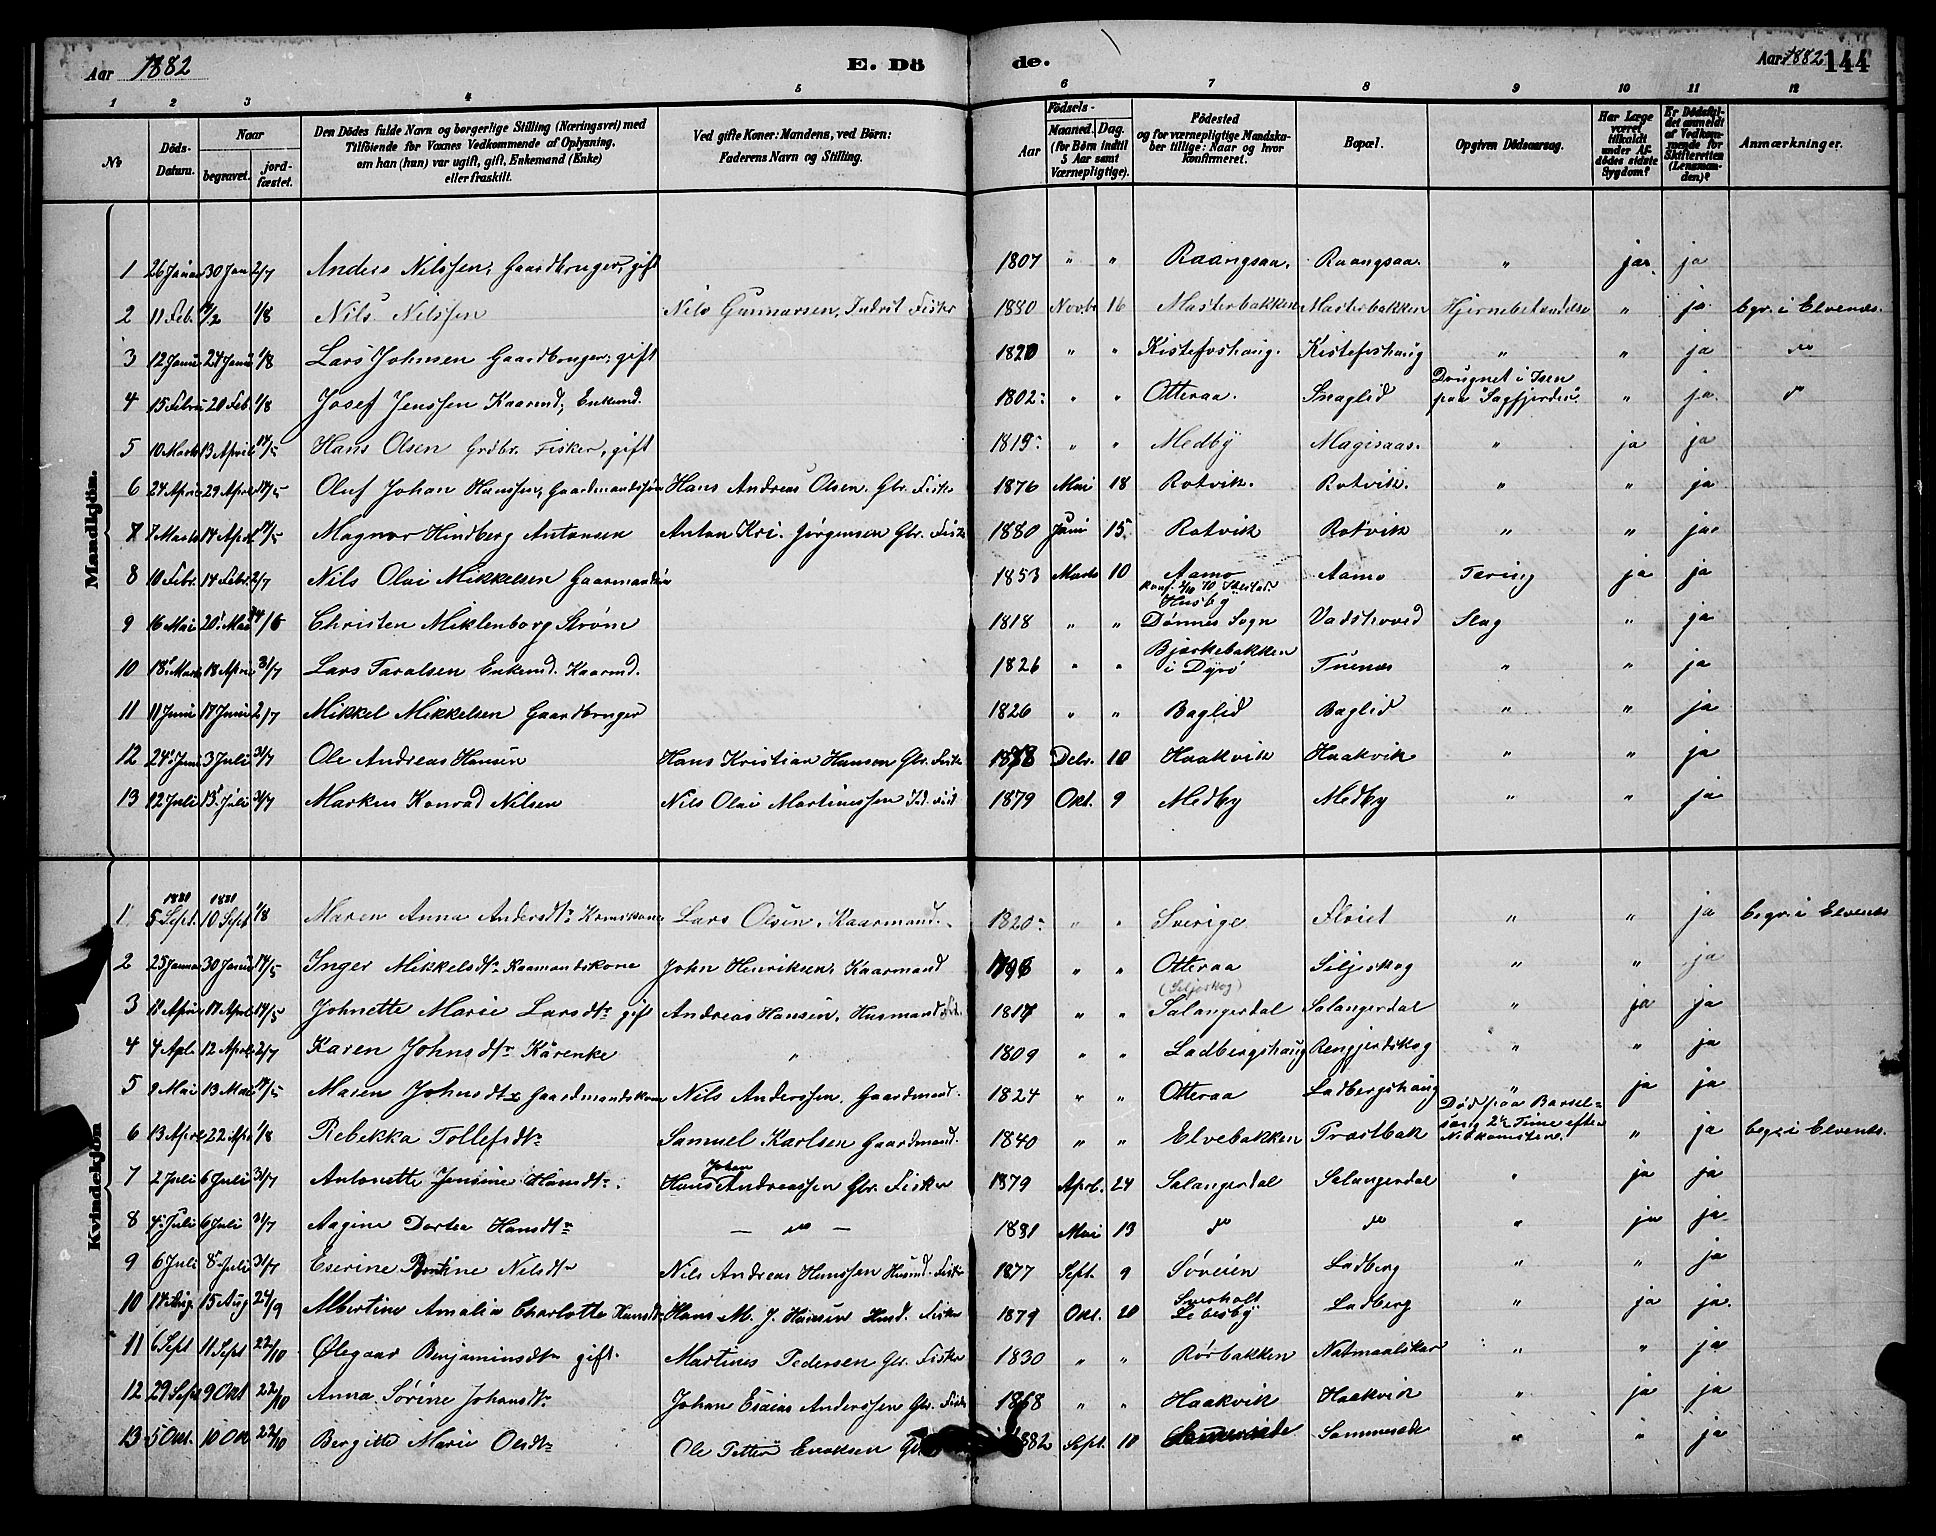 Aar 1882 E. Dö de. Aar 1882 144
1 2 3 4 5 6 7 8 9 10 11 12
No
Döds-Datum.
Naar
begravet.
jordfæstet.
Den Dödes fulde Navn og borgerlige Stilling (Næringsvei) med
Tilföiende for Voxnes Vedkommende af Oplysning,
om han (hun) var ugift, gift, Enkemand (Enke)
eller fraskilt.
Ved gifte Koner: Mandens, ved Börn:
Faderens Navn og Stilling.
Aar
Födsels-
Maaned. Dag.
(for Börn indtil
5 Aar samt
Værnepligtige).
Födested
og for værnepligtige Mandska-
ber tillige: Naar og hvor
konfirmeret.
Bopæl.
Opgiven Dödsaarsag.
Har Læge
været
tilkaldt
under Af-
dödes sidste
Sygdom?
Er Dödsfal-
det anmeldt
af Vedkom-
mende for
Skifteretten
(Lensman-
den)?
Anmærkninger.
Mandkjön.
1 26 Januar 30 Jan 2/7 Anders Nilssen, Gaardbruger, gift 1807 " " Raangsaa. Raangsaa. " ja. ja
2 11 Feb. 1/8 Nils Nilssen Nils Gunnarsen, Indrst Fisker 1880 Novbr 16 Masterbakken Masterbakken Hjernebetændelse " ja. begr. i Elvenes.
3 12 Janu 24 Janu 1/8 Lars Johnsen Gaardbruger, gift 1820 " " Kistefoshaug. Kistefoshaug " " ja do
4 15 Febru 20 Feb. 1/8 Josef Jenssen Kaarmd, Enkemd. 1802 " " Otteraa. Snaglid Drugnet i Isen
paa "Sagfjorden". " ja. do
5 10 Marts 13 April 14/5 Hans Olsen Grdbr. Fisker, gift 1815 " " Medby Magisaas. " ja ja
6 24 April 29 April 14/5 Oluf Johan Hanssen, Gaardmandssøn Hans Andreas Olsen. Gbr. Fisker 1876 Mai 18 Rotvik. Rotvik. " " ja
7 7 Marts 14 April 14/5 Magnor Hindberg Antonsen Anton Kri. Jørgensen Gbr. Fisker 1880 Juni 15 Rotvik Rotvik " " ja
8 10 Febr. 14 Febr 2/7 Nils Olai Mikkelsen Gaarmandssøn 1853 Marts 10 Aamo Aamo Tæring ja ja
9 16 Mai 20 Mai 24/6 Christen Miklenborg Strøm 1818 " " Husby
Dønnes Sogn Vadshoved Slag " ja
10 18 Marts 18 April 31/7 Lars Taralsen Enkemd. Kaarmd. 1826 " " Bjørkebakken
i Dyrø Tuenes " " ja
11 11 Juni 17 Juni 2/7 Mikkel Mikkelsen Gaardbruger 1826 " " Baglid Baglid " " ja
12 24 Juni 3 Juli 31/7 Ole Andreas Hansen Hans Kristian Hansen Gbr. Fisker 1878 Debr. 10 Haakvik Haakvik " " ja
13 12 Juli 15 Juli 31/7 Markus Konrad Nilsen Nils Olai Martinussen Ind. Fisk 1879 Okt. 9 Medby Medby " " ja
Kvindekjön
1 1881 5 Sept. 1881 10 Sept 1/8 Maren Anna Andersdtr. Lars Olsen, Kaarmand. 1820 " " Sverige Fløiet " " ja begr. i Elvenes
2 25 Januar 30 Januar 14/5 Inger Mikkelsdtr. Kaarmandskone John Henriksen, Kaarmand 1796 " " Otteraa
(Seljeskog) Seljeskog " " ja
3 11 April 17 April 14/5 Johnette Marie Larsdtr. gift Andreas Hansen, Husmand Fi. 1817 " " Salangerdal Salangerdal " ja ja
4 4 Apl. 12 April 2/7 Karen Johnsdtr. Kårenke " 1809 " " Ladbergshaug Rengjerdskog " " ja
5 9 Mai 13 Mai 14/5 Maren Johnsdtr Gaardmandskone Nils Anderssen, Gaardmand. 1824 " " Otteraa Ladbergshaug " ja ja
6 13 April 22 Apr 1/8 Rebekka Tollefsdtr. Samuel Karlsen Gaardmand. 1840 " " Elvebakken Prøstbak Død paa Barsel-
seng 2de Time efter
Nedkomsten. " ja begr. i Elvenes.
7 2 Juli 6 Juli 31/7 Antonette Jensine Hansdtr. Hans Johan Andreassen Gbr. Fisker 1879 Apr. 24 Salangerdal Salangerdal " ja ja
8 4 Juli 6 Juli 31/7 Aagine Dortea Hansdtr – do – 1881 Mai 13 do do " ja ja
9 6 Juli 8 Juli 31/7 Eserine Bentine Nilsdtr Nils Andreas Hanssen Husmd. Fisker 1877 Sept. 9 Søveien Ladberg " " ja
10 12 Aug. 15 Aug 24/9 Albertine Amalia Charlotte Hansdtr Hans M. J. Hansen Hmd. Fisker 1879 Okt. 20 Sverholt
Lebesby Ladberg " ja ja.
11 6 Sept 11 Sept 22/10 Ølegaar Benjaminsdtr gift. Martines Pedersen Gbr. Fisker 1830 " " Rørbakken Natmaalskar " " ja
12 29 Sept 9 Okt 22/10 Anna Sørine Johansdtr. Johan Esaias Anderssen Gbr. Fisker 1868 " " Haakvik Haakvik " ja ja
13 5 Okt. 10 Okt 22/10 Bergitte Marie Olsdtr Ole Petter Enoksen 1882 Sept. 10 Sommersede " " ja